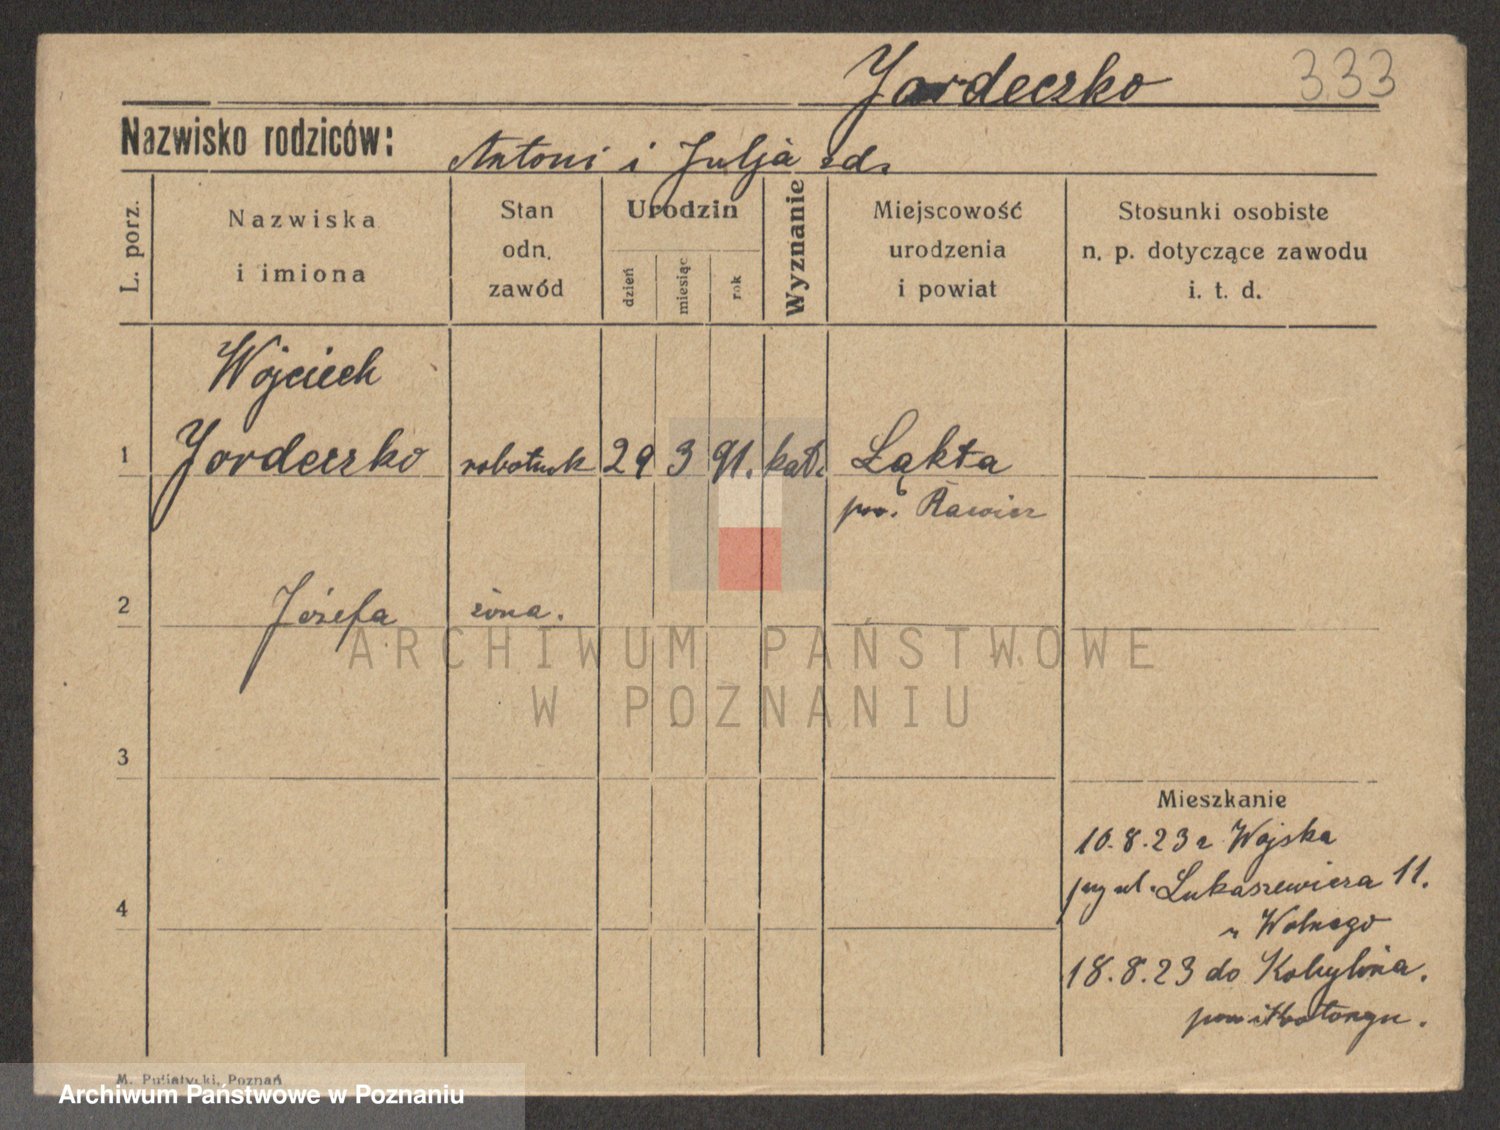 Jordeczko 333
Nazwisko rodziców:
Antoni i Julja
L. porz.
Nazwiska
i imiona
Stan
odn.
zawód
Urodzin
dzień
miesiąc
rok
Wyznanie
Miejscowość
urodzenia
i powiat
Stosunki osobiste
n. p. dotyczące zawodu
i. t. d.
Wojciech
1 Jordeczko robotnik 29 3 91. kat. Łąkta
pow. Rawicz
2 Józefa żona.
3
4
Mieszkanie
10.8.23 z Wojska
przy ul. Lukaszewicza 11.
u Wolnego
18.8.23 do Kobylina.
pow.
M. Putiatycki, Poznań
ARCHIWUM PAŃSTWOWE
W POZNANIU
Archiwum Państwowe w Poznaniu